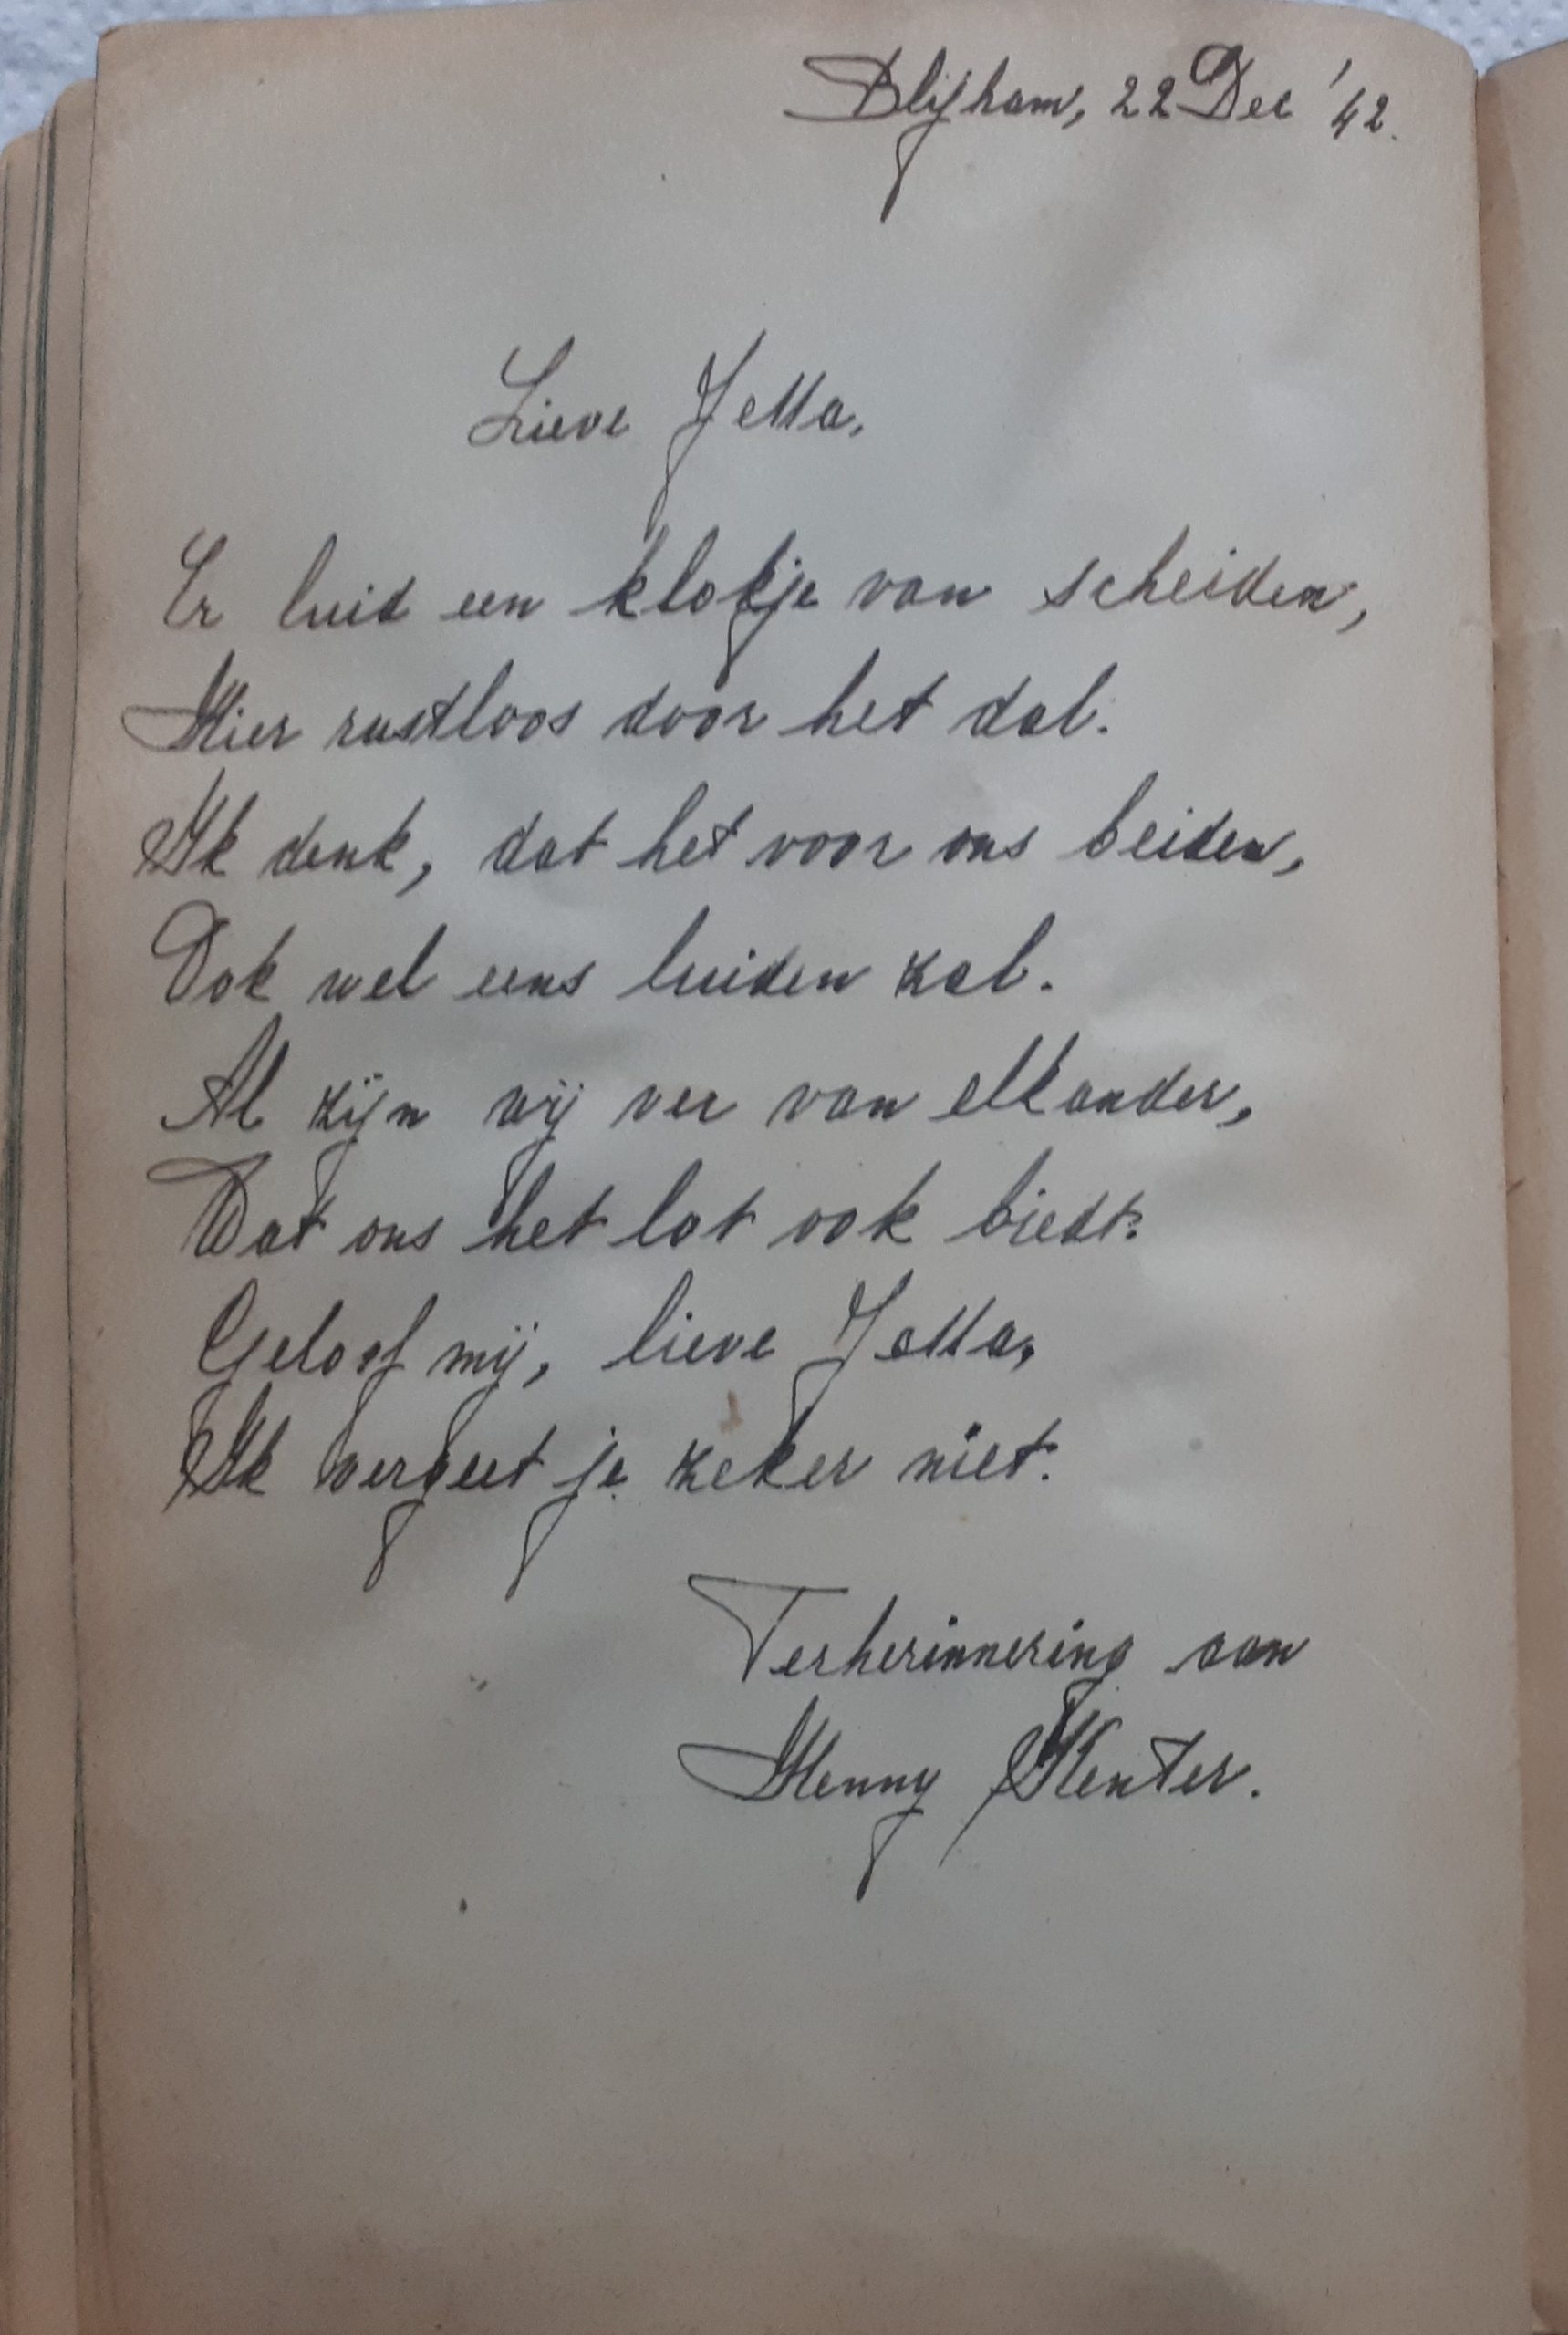 Blijham, 22 Dec '42.
Lieve Jetta,
Er luid een klokje van scheiden,
Hier rustloos door het dal.
Ik denk, dat het voor ons beiden,
Ook wel eens luiden zal.
Al zijn wij ver van elkander,
Wat ons het lot ook biedt.
Geloof mij, lieve Jetta,
Ik vergeet je zeker niet.
Terherinnering aan
Henny Kenter.